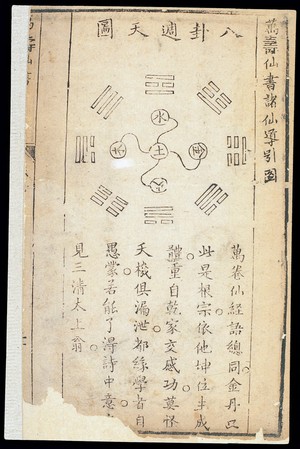 萬壽仙書諸仙導引圖
八卦週天圖
水
金
土
木
火
萬卷仙經語總同金丹只
此是根宗依他坤位生成
體重自乾家交感功莫怪
天機俱漏泄都緣學者自
愚蒙若能了淂詩中意
見三清太上翁